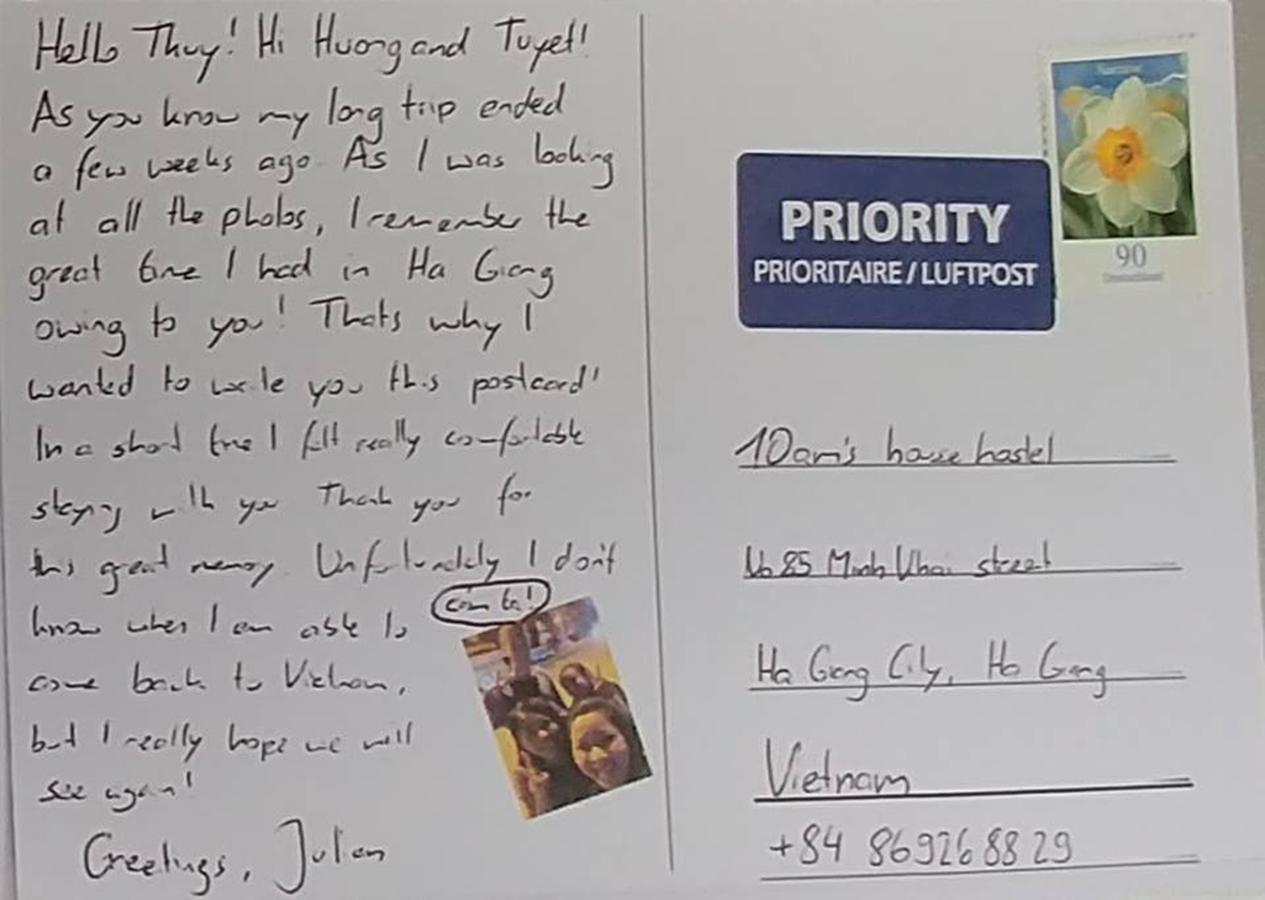 Hello Thuy! Hi Huong and Tuyet!
As you know my long trip ended
a few weeks ago. As I was looking
at all the photos, I remember the
great time I had in Ha Giang
owing to you! Thats why I
wanted to write you this postcard!
In a short time I felt really comfortable
staying with you Thank you for
this great memory. Unfortunately I don't
know when I am able to
come back to Vietnam,
but I really hope we will
see again!
Greetings, Julian
PRIORITY
PRIORITAIRE / LUFTPOST
90
Deutschland
10am's house hostel
No 85 Minh Khai street
Ha Giang City, Ha Giang
Vietnam
+84 869268829